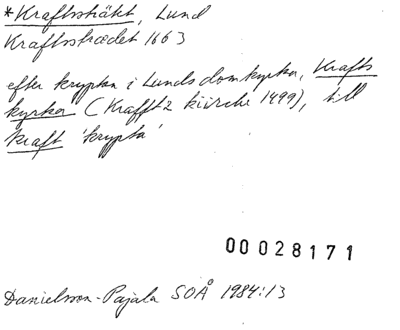 *Kraftssträkt, Lund
Kraftsstrædet 1663
efter kryptan i Lunds domkyrka, Krafts
kyrka (Krafftz kiirche 1499), till
kraft 'krypta'
00028171
Danielsson-Pajala SOÅ 1984:13